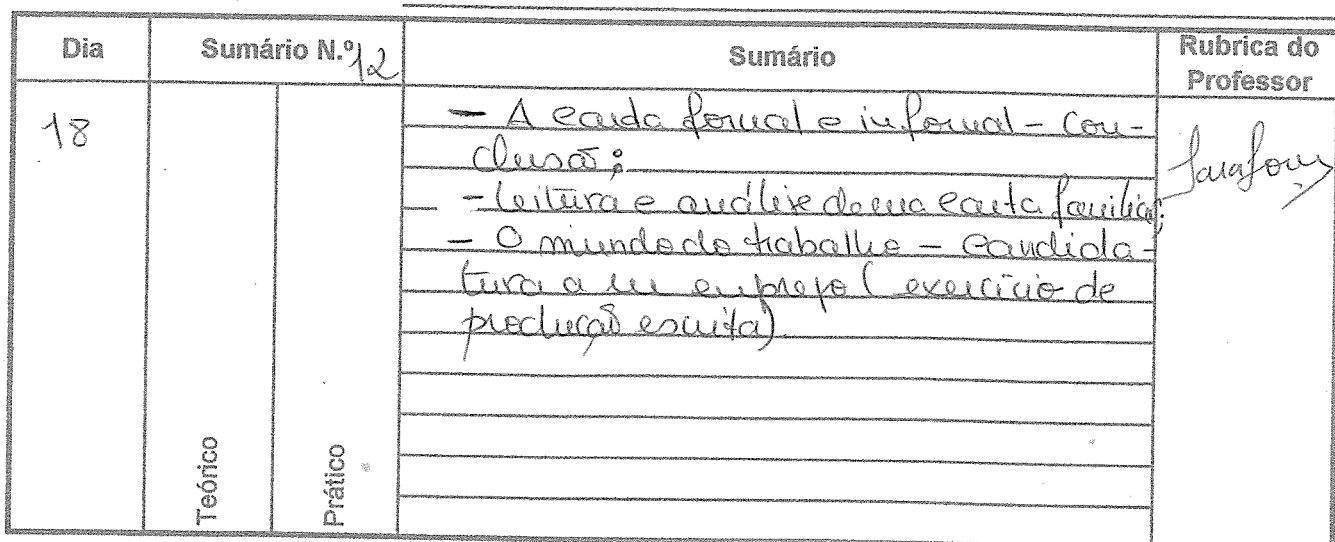 Dia
Sumário N.º 12
Sumário
Rubrica do
Professor
18
- A carta formal e informal - con-
clusão;
- leitura e análise de uma carta familiar;
- O mundo do trabalho - candida-
tura a um emprego (exercício de
produção escrita).
Teórico
Prático